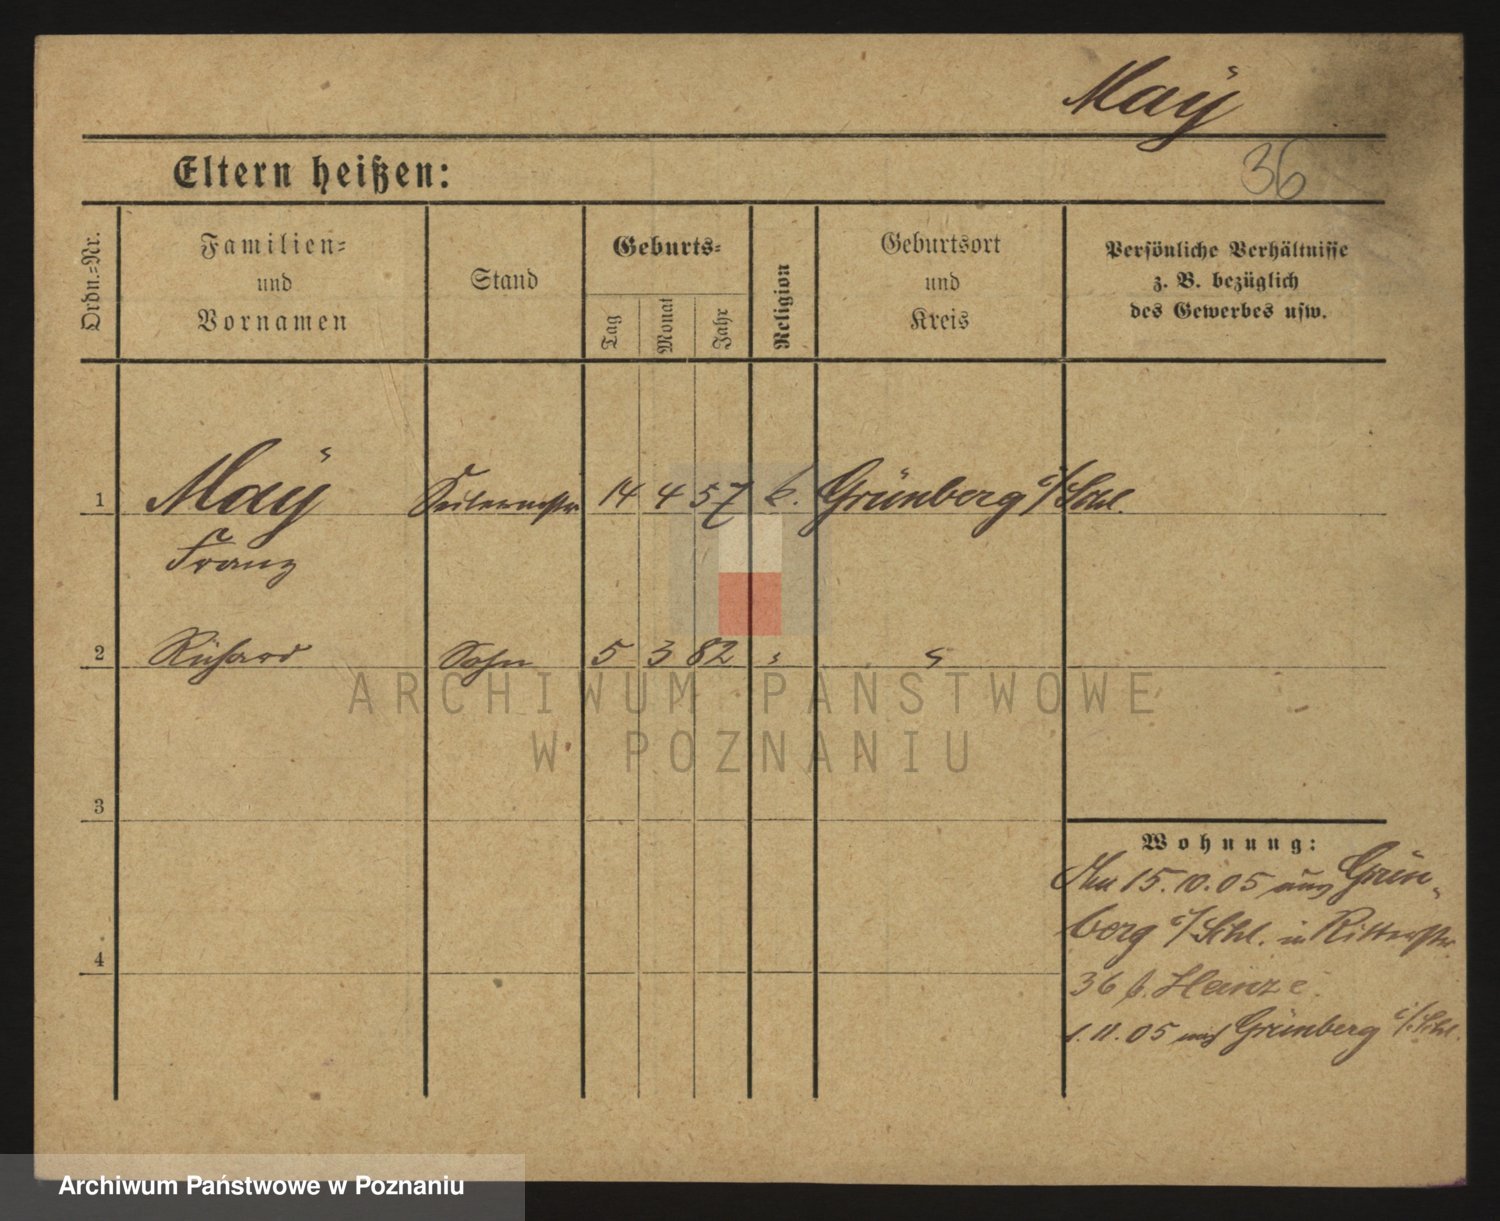 Maÿ
Eltern heißen:
36
Ordn.-Nr.
Familien-
und
Vornamen
Stand
Geburts-
Tag
Monat
Jahr
Religion
Geburtsort
und
Kreis
Persönliche Verhältnisse
z. B. bezüglich
des Gewerbes usw.
1 Maÿ 14 4 57 k. Grünberg i/Schl.
Franz
2 Richard Sohn 5 3 82 " "
3
4
Wohnung:
Am 15.10.05 aus Grün-
berg i/Schl. in Ritterstr.
36 b. Heinze.
1.11.05 nach Grünberg i/Schl.
ARCHIWUM PAŃSTWOWE
W POZNANIU
Archiwum Państwowe w Poznaniu